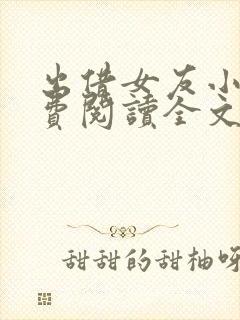 出借女友小
費閱讀全文
甜甜的甜柚呀